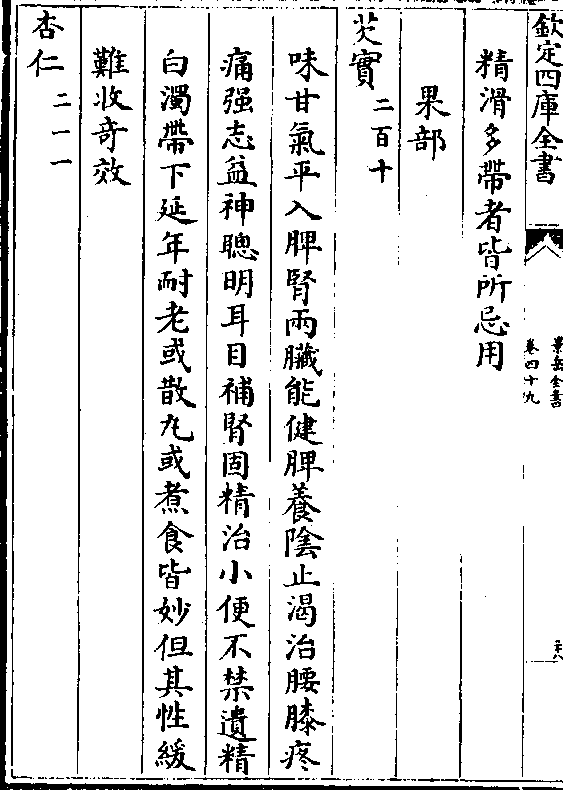 欽定四庫全書
景岳全書
卷四十九
精滑多帶者皆所忌用
果部
芡實二百十
味甘氣平入脾腎兩臟能健脾養陰止渴治腰膝疼
痛强志益神聰明耳目補腎固精治小便不禁遺精
白濁帶下延年耐老或散丸或煮食皆妙但其性緩
難收奇效
杏仁二一一